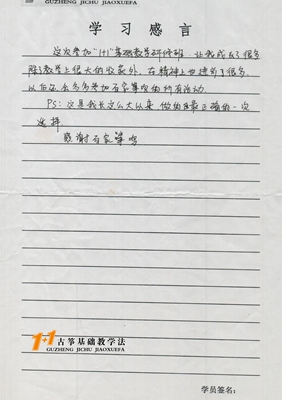 GUZHENG JICHU JIAOXUEFA
学习感言
这次参加“1+1”筝基础教学研修班，让我成长了很多
除了教学上很大的收获外，在精神上也进步了很多，
以后还会多多参加石家筝鸣的所有活动.
PS：这是我长这么大以来，做的最正确的一次
选择.
感谢石家筝鸣
1+1古筝基础教学法
GUZHENG JICHU JIAOXUEFA
学员签名：